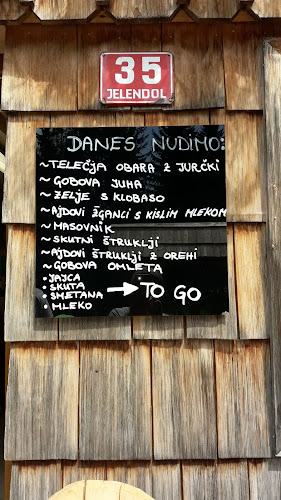 35
JELENDOL
DANES NUDIMO:
~TELEČJA OBARA Z JURČKI
~GOBOVA JUHA
~ZELJE S KLOBASO
~AJDOVI ŽGANCI S KISLIM MLEKOM
~MASOVNIK
~SKUTNI ŠTRUKLJI
~AJDOVI ŠTRUKLJI Z OREHI
~GOBOVA OMLETA
•JAJCA
•SKUTA
•SMETANA → TO GO
•MLEKO